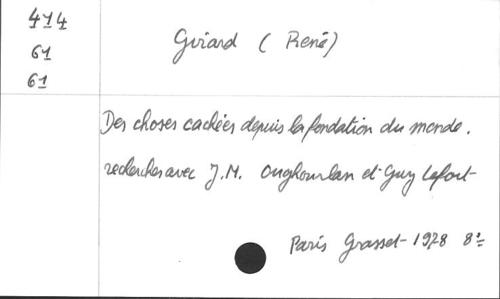 414
61
61
Girard ( René)
Des choses cachées depuis la fondation du monde.
recherches avec J.M. Oughourlan et Guy Lefort
Paris Grasset 1978 8º